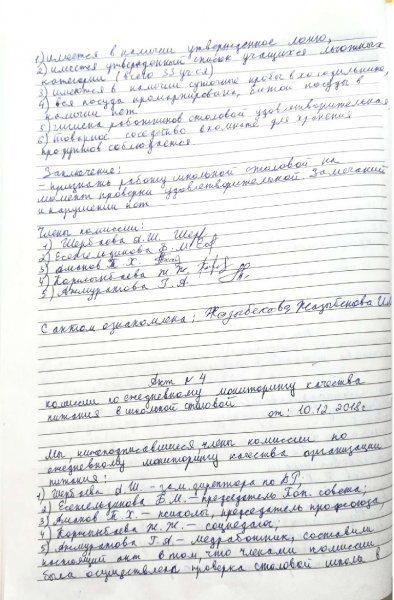 1) имеется в наличии утвержденное меню,
2) имеется утвержденный список учащихся льготных
категории (всего 33 уч-ся)
3) имеются в наличии суточные пробы в холодильнике,
4) вся посуда промаркирована, битой посуды в
наличии нет
5) гигиена работников столовой удовлетворительная
6) товарное соседство в комнате для хранения
продуктов соблюдается.
Заключение:
- признать работу школьной столовой на
момент проверки удовлетворительной. Замечаний
и нарушений нет
Члены комиссии:
1) Щербаева А.Ш.
2) Есенгельдинова Б.М.
3) Аманов Т.Х.
4) Ж.Ж.
5) Ажмуратова Г.А.
С актом ознакомлена: Жазыбекова
Акт № 4
комиссии по ежедневному мониторингу качества
питания в школьной столовой
от: 10.12.2018г
Мы нижеподписавшиеся члены комиссии по
ежедневному мониторингу качества организации
питания:
1) Щербаева А.Ш - зам.директора по ВР,
2) Есенгельдинова Б.М. - председатель Поп. совета;
3) Аманов Т.Х. - психолог, председатель профсоюза
4) Ж.Ж. - соцпедагог,
5) Ажмуратова Г.А - медработник, составили
настоящий акт в том, что членами комиссии
была осуществлена проверка столовой школы в